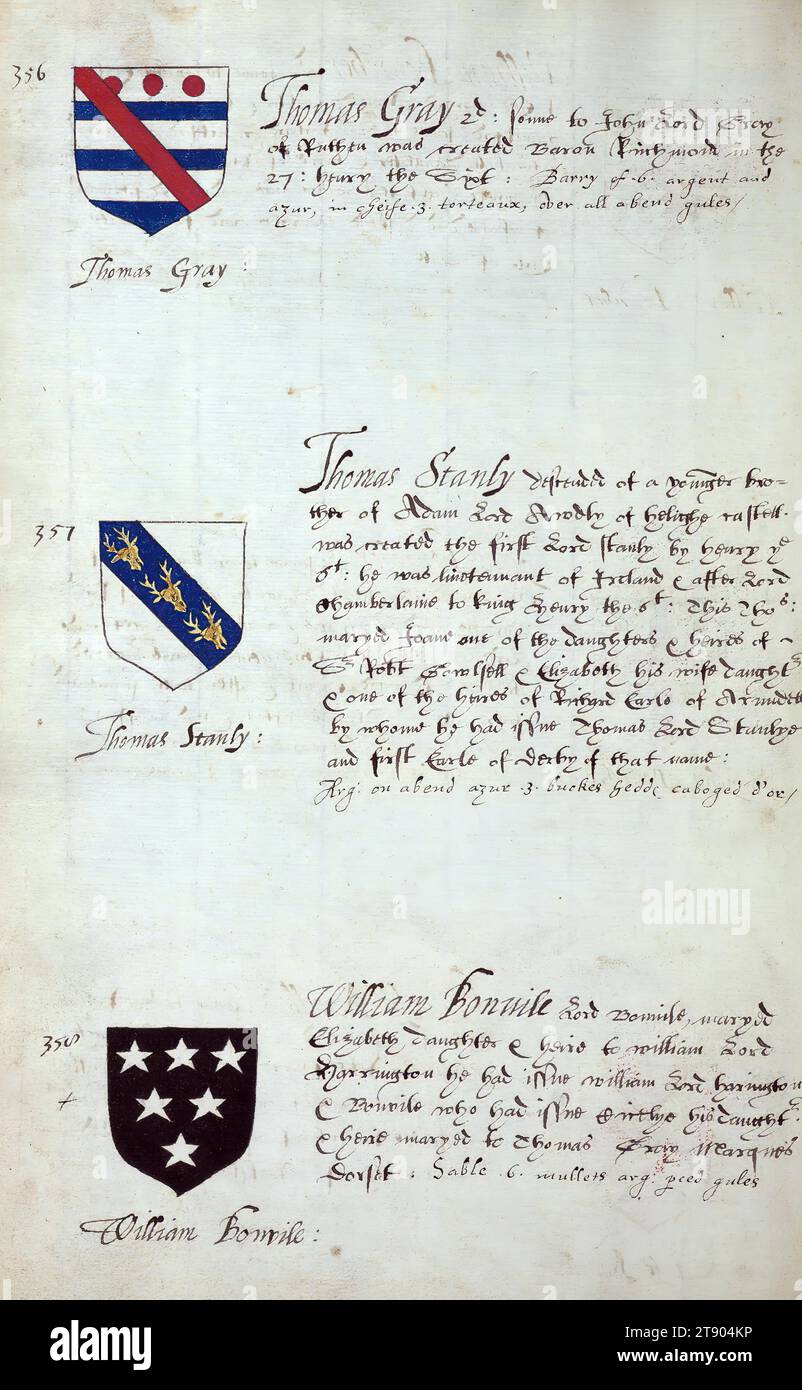 356
Thomas Gray 2d: sonne to John Lord Gray
of Ruthen was created Baron Richmond in the
27: Henry the Sixt: Barry of .6. argent and
azur, in cheife .3. torteaux, over all a bend gules/
Thomas Gray:
Thomas Stanly descended of a younger bro-
ther of Adam Lord Awdly of Helighe castell.
357
was created the first Lord Stanly by Henry ye
6t: he was lieutenant of Ireland & after Lord
Chamberlaine to King Henry the 6t: This Thos:
maryed Joane one of the daughters & heires of
Sr Robt Gowlsell & Elizabeth his wife daught
& one of the heires of Richard Earle of Arundell
by whome he had issue Thomas Lord Stanlye
Thomas Stanly:
and first Earle of Derby of that name:
Arg: on a bend azur .3. buckes hedds caboged d'or/
William Bonvile Lord Bonvile, maryed
358
Elizabeth daughter & heire to William Lord
Harrington he had issue William Lord Harington
& Bonvile who had issue his daught
& heire maryed to Thomas Gray Marques
Dorset: Sable .6. mullets arg: pced gules
William Bonvile:
alamy
alamy
Image ID: 2T904KP
www.alamy.com